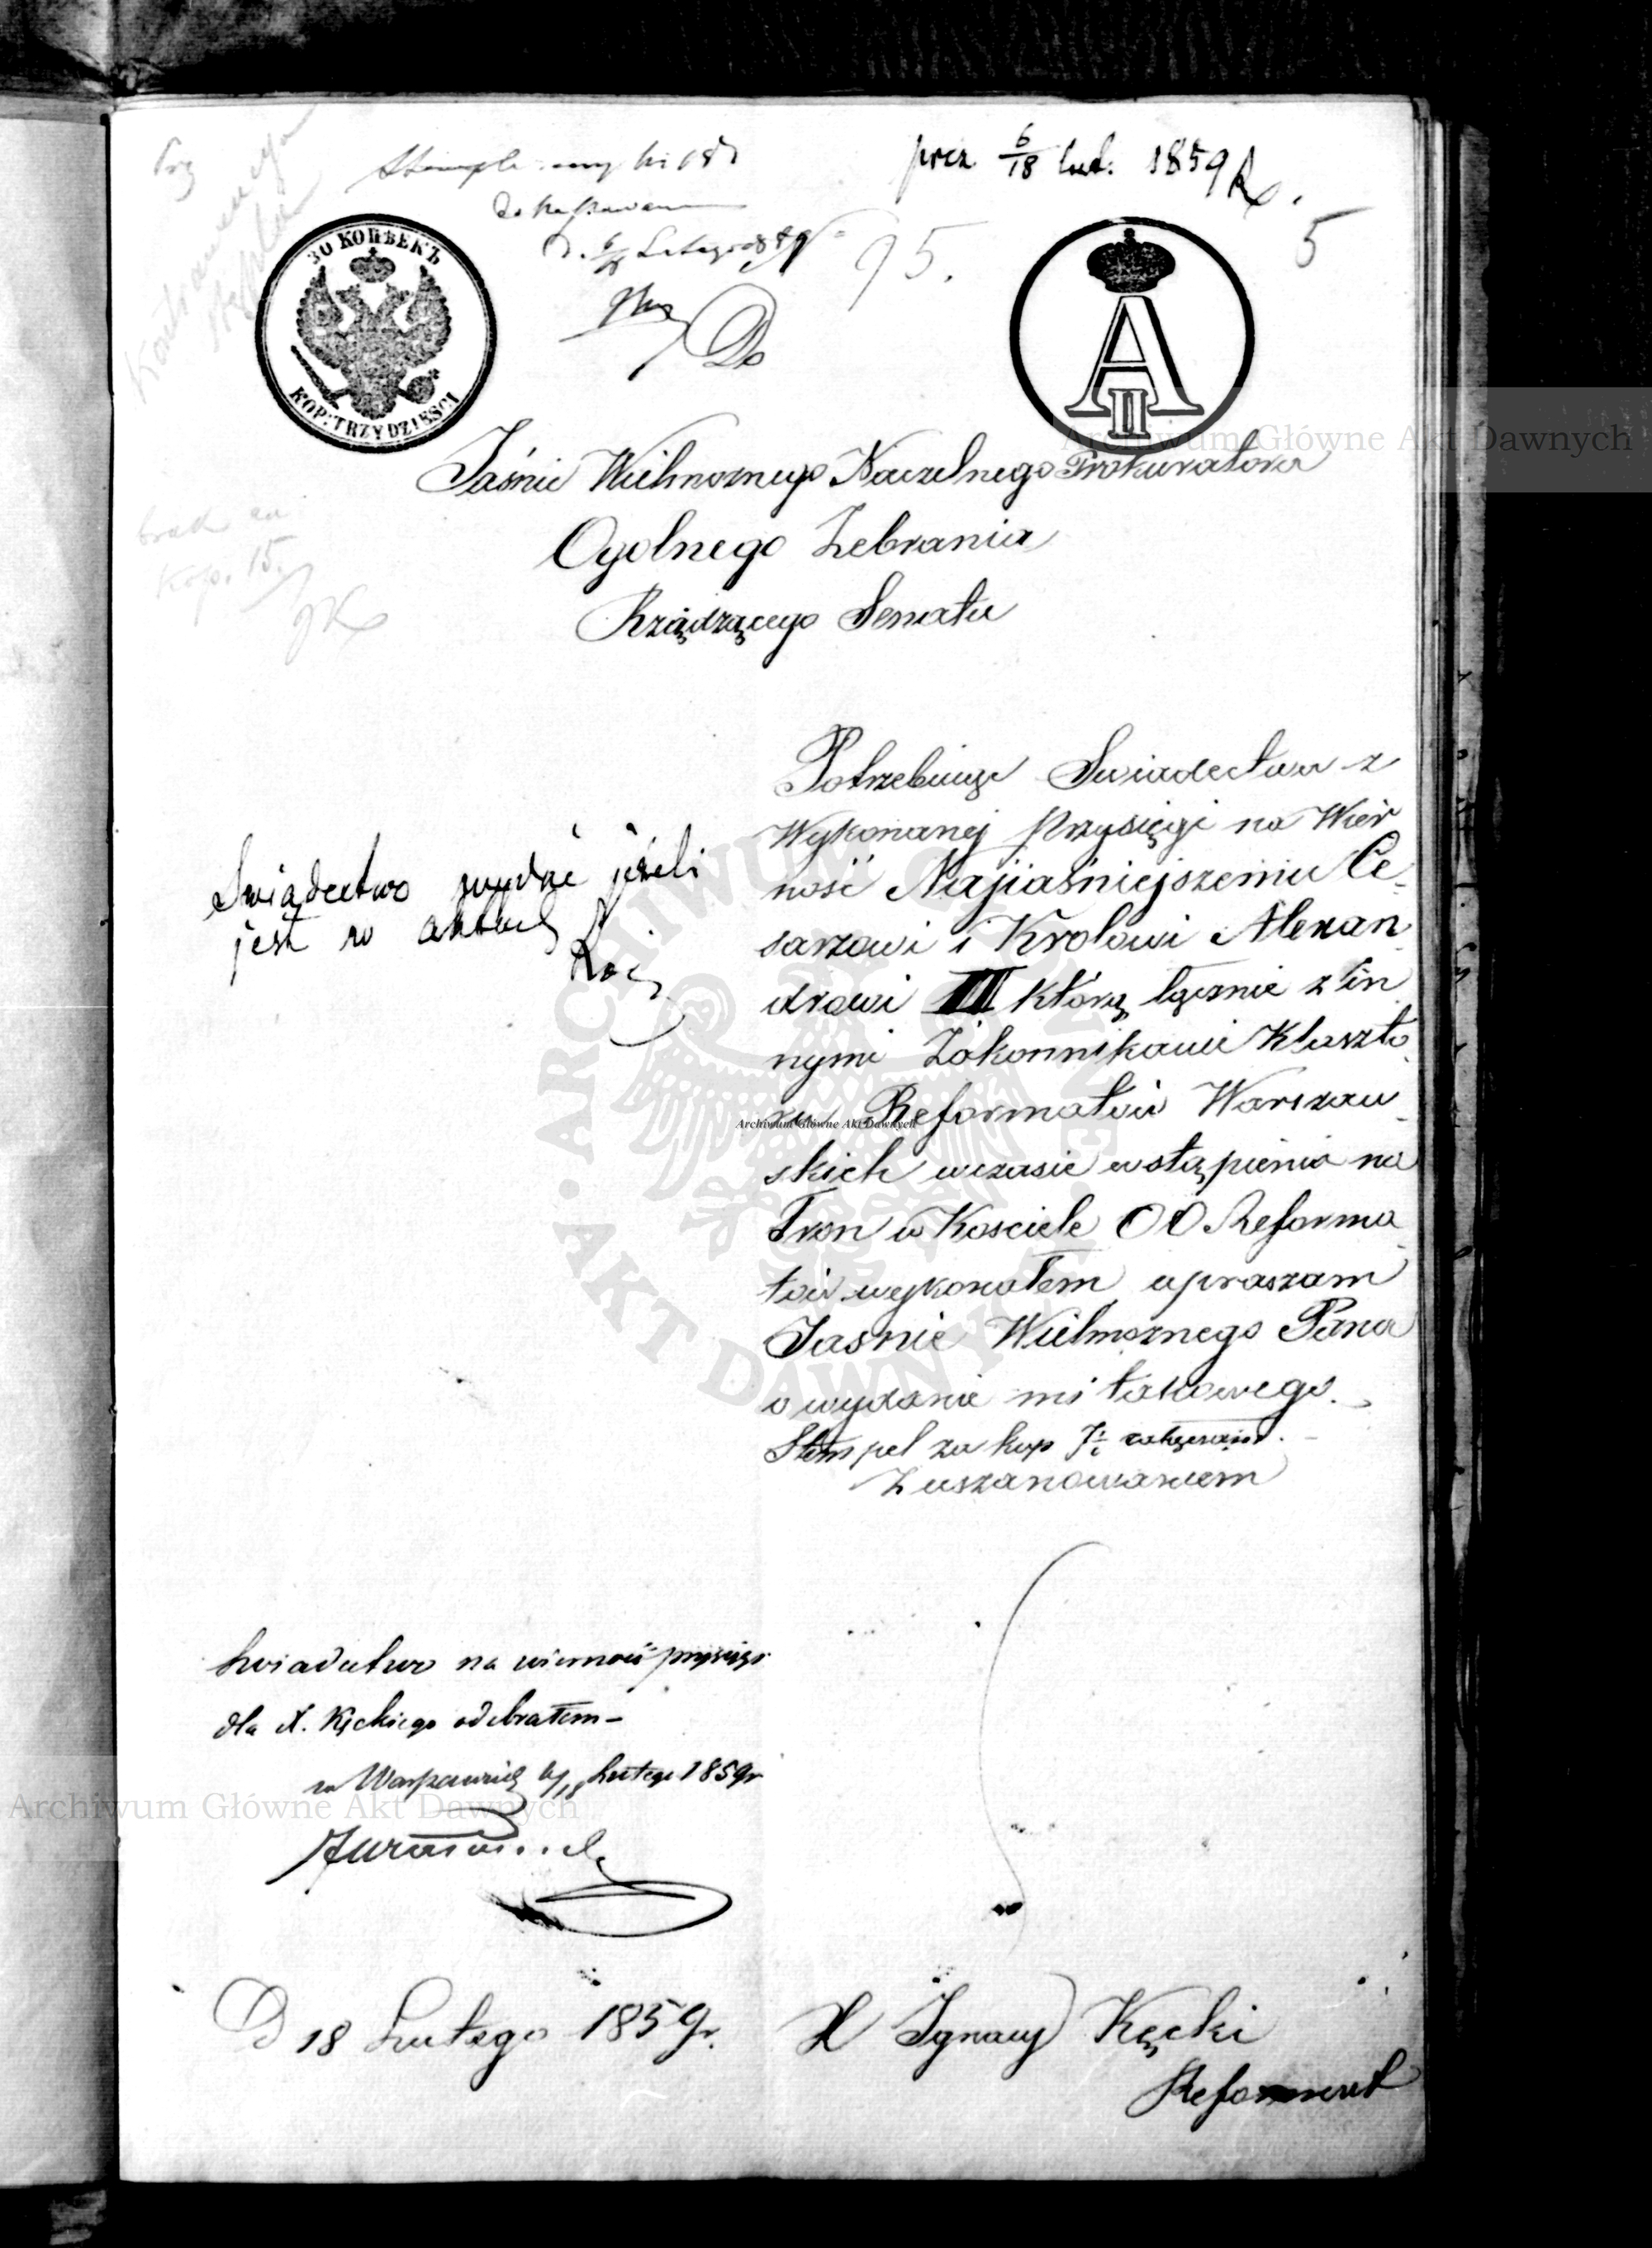 prez 6/18 lut. 1859
5
95.
do kassowania
30 КОПѢЕКЪ
KOP: TRZYDZIEŚCI
A II
Do
Jaśnie Wielmoznego Naczelnego Prokuratora
Ogolnego Zebrania
Rządzącego Senatu
brak
kop. 15.
Potrzebując Swiadectwa z
Wykonanej Przysięgi na Wier
ność Najjaśniejszemu Ce-
sarzowi i Krolowi Alexan
drowi II którą łącznie z in
nymi Zakonnikami Klaszto
ru Reformatów Warszaw-
skich w czasie wstąpienia na
Tron w Kosciele OO Reforma-
tów wykonałem upraszam
Jasnie Wielmoznego Pana
o wydanie mi takowego.
Stempel za kop 7½ załączam.
Z uszanowaniem
Swiadectwo wydać jeżeli
jest w aktach
Swiadectwo na wierność przysięgi
dla X. Kęckiego odebrałem –
w Warszawie 6/18 Lutego 1859r
D 18 Lutego 1859r.
X Ignacy Kęcki
Reformat
Archiwum Główne Akt Dawnych
Archiwum Główne Akt Dawnych
Archiwum Główne Akt Dawnych